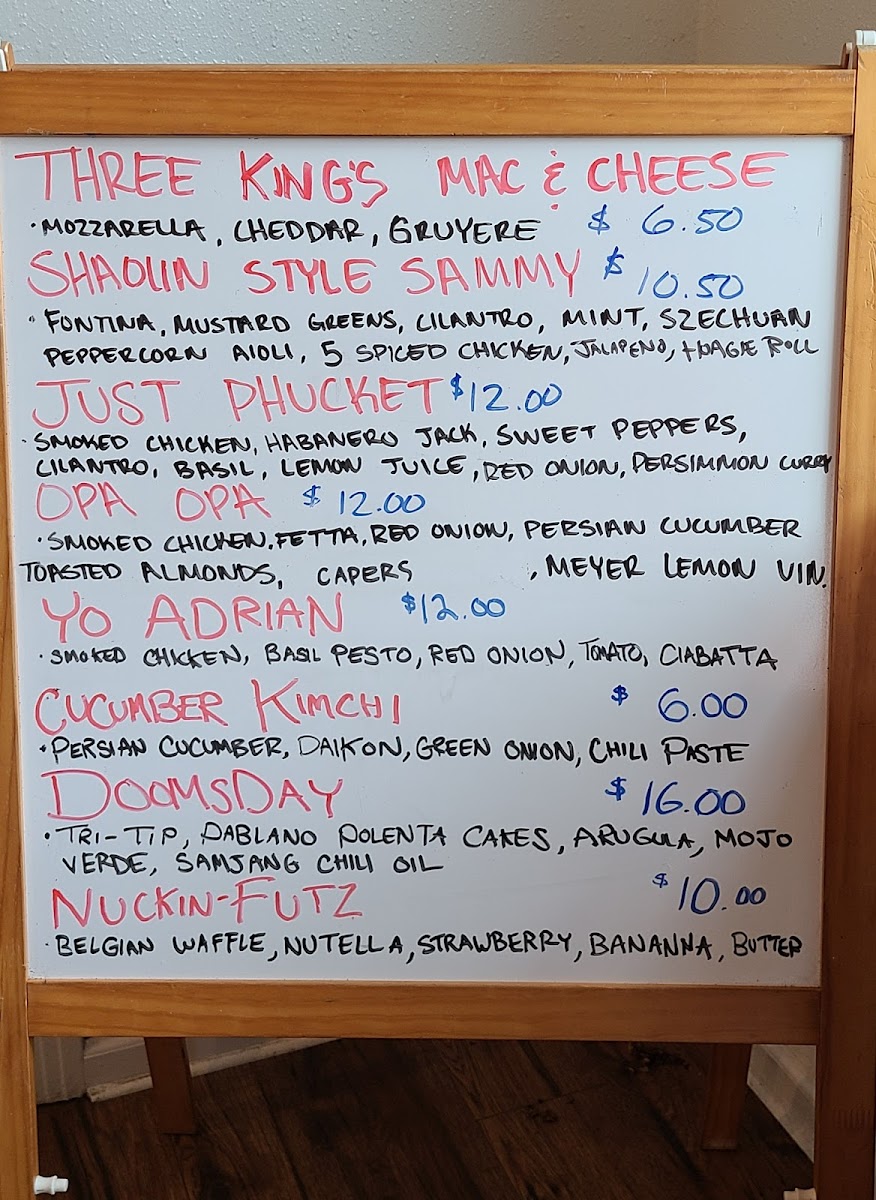 THREE KING'S MAC & CHEESE
· MOZZARELLA, CHEDDAR, GRUYERE $ 6.50
SHAOLIN STYLE SAMMY $ 10.50
· FONTINA, MUSTARD GREENS, CILANTRO, MINT, SZECHUAN
PEPPERCORN AIOLI, 5 SPICED CHICKEN, JALAPENO, HOAGIE ROLL
JUST PHUCKET $12.00
· SMOKED CHICKEN, HABANERO JACK, SWEET PEPPERS,
CILANTRO, BASIL, LEMON JUICE, RED ONION, PERSIMMON CURRY
OPA OPA $ 12.00
· SMOKED CHICKEN, FETTA, RED ONION, PERSIAN CUCUMBER
TOASTED ALMONDS, CAPERS , MEYER LEMON VIN.
YO ADRIAN $12.00
· SMOKED CHICKEN, BASIL PESTO, RED ONION, TOMATO, CIABATTA
CUCUMBER KIMCHI $ 6.00
· PERSIAN CUCUMBER, DAIKON, GREEN ONION, CHILI PASTE
DOOMSDAY $ 16.00
· TRI-TIP, PABLANO POLENTA CAKES, ARUGULA, MOJO
VERDE, SAMJANG CHILI OIL
NUCKIN-FUTZ $ 10.00
· BELGIAN WAFFLE, NUTELLA, STRAWBERRY, BANANNA, BUTTER